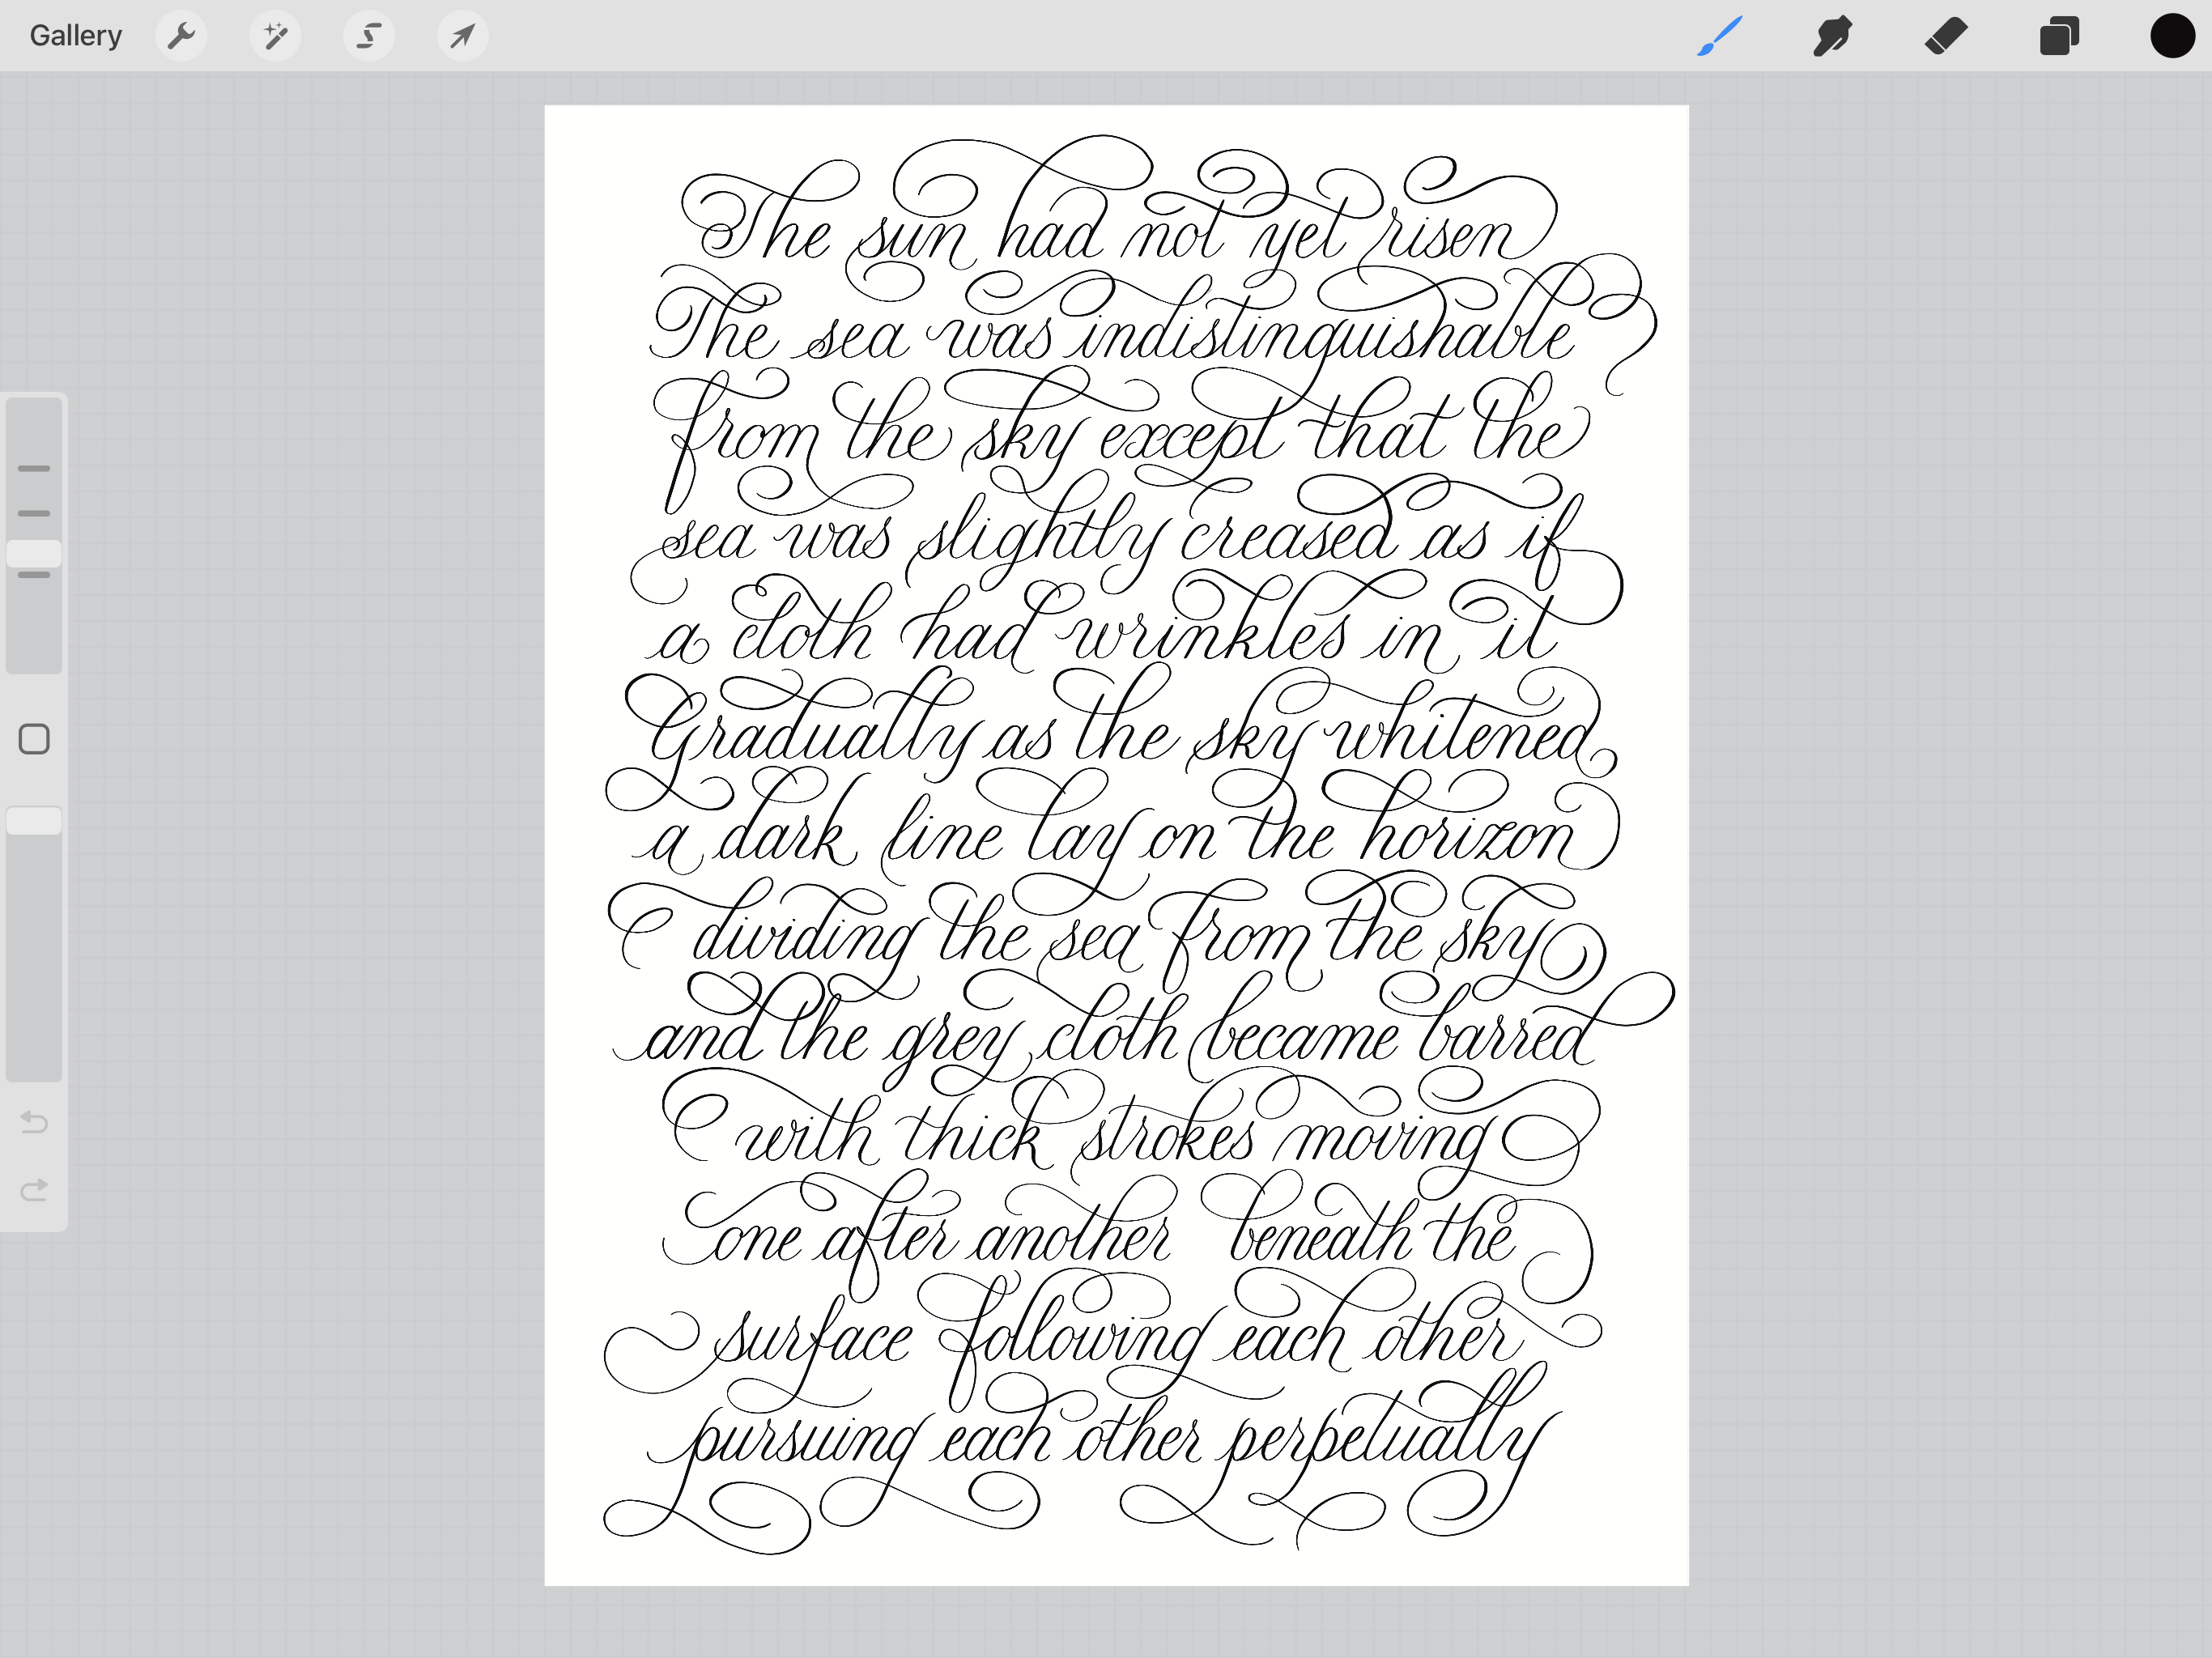 Gallery
The sun had not yet risen
The sea was indistinguishable
from the sky except that the
sea was slightly creased as if
a cloth had wrinkles in it
Gradually as the sky whitened
a dark line lay on the horizon
dividing the sea from the sky
and the grey cloth became barred
with thick strokes moving
one after another beneath the
surface following each other
pursuing each other perpetually